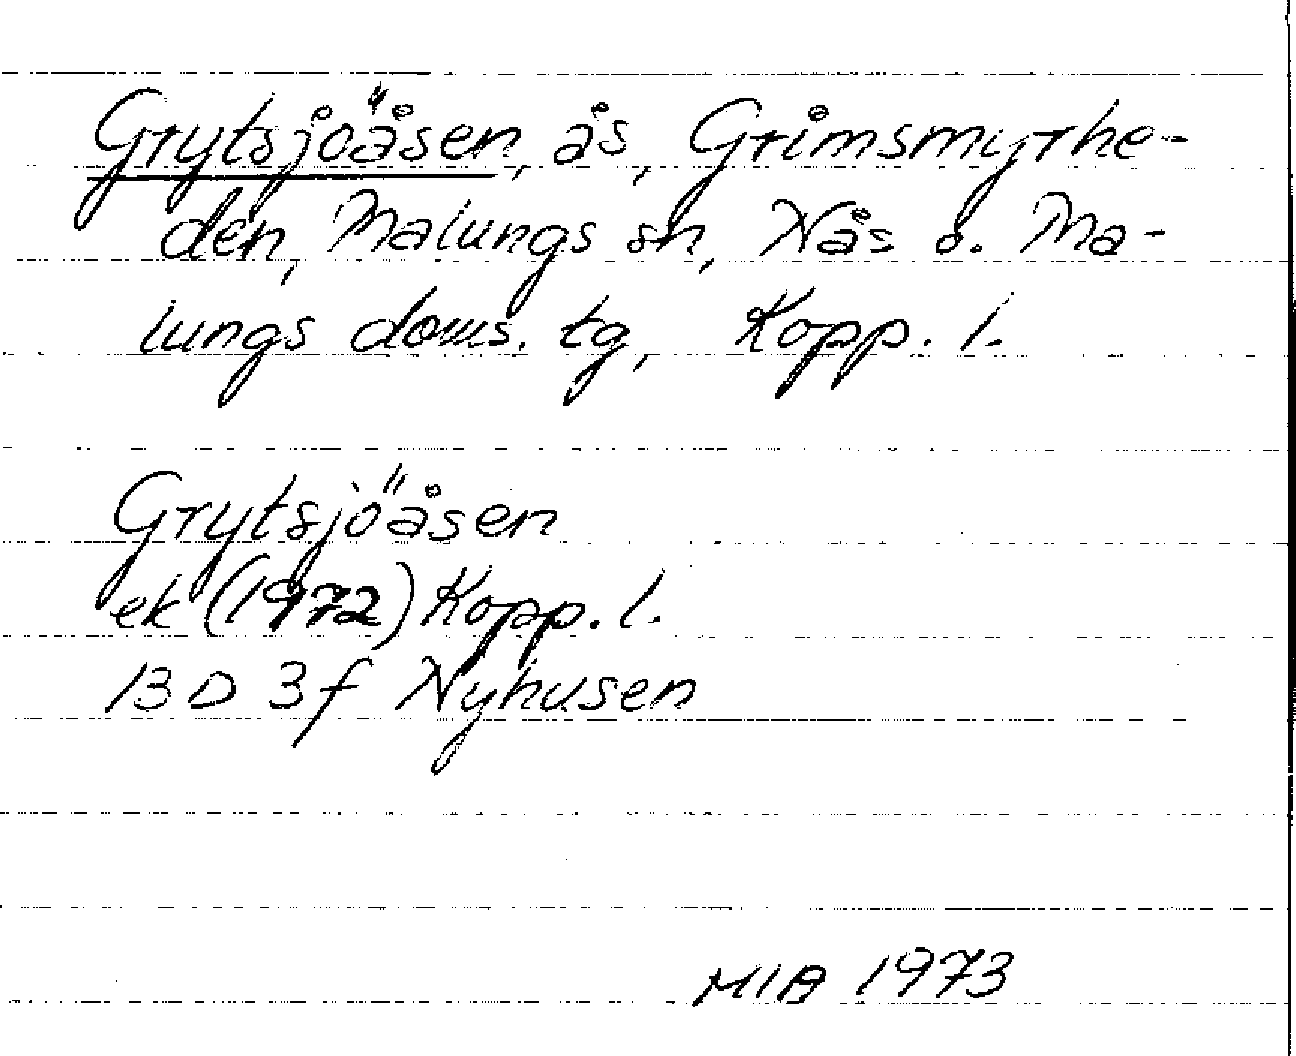 Grytsjöåsen, ås, Grimsmyrhe-
den, Malungs sn, Nås o. Ma-
lungs doms. tg, Kopp. l.
Grytsjöåsen
ek (1972) Kopp. l.
13 D 3f Nyhusen
MIA 1973